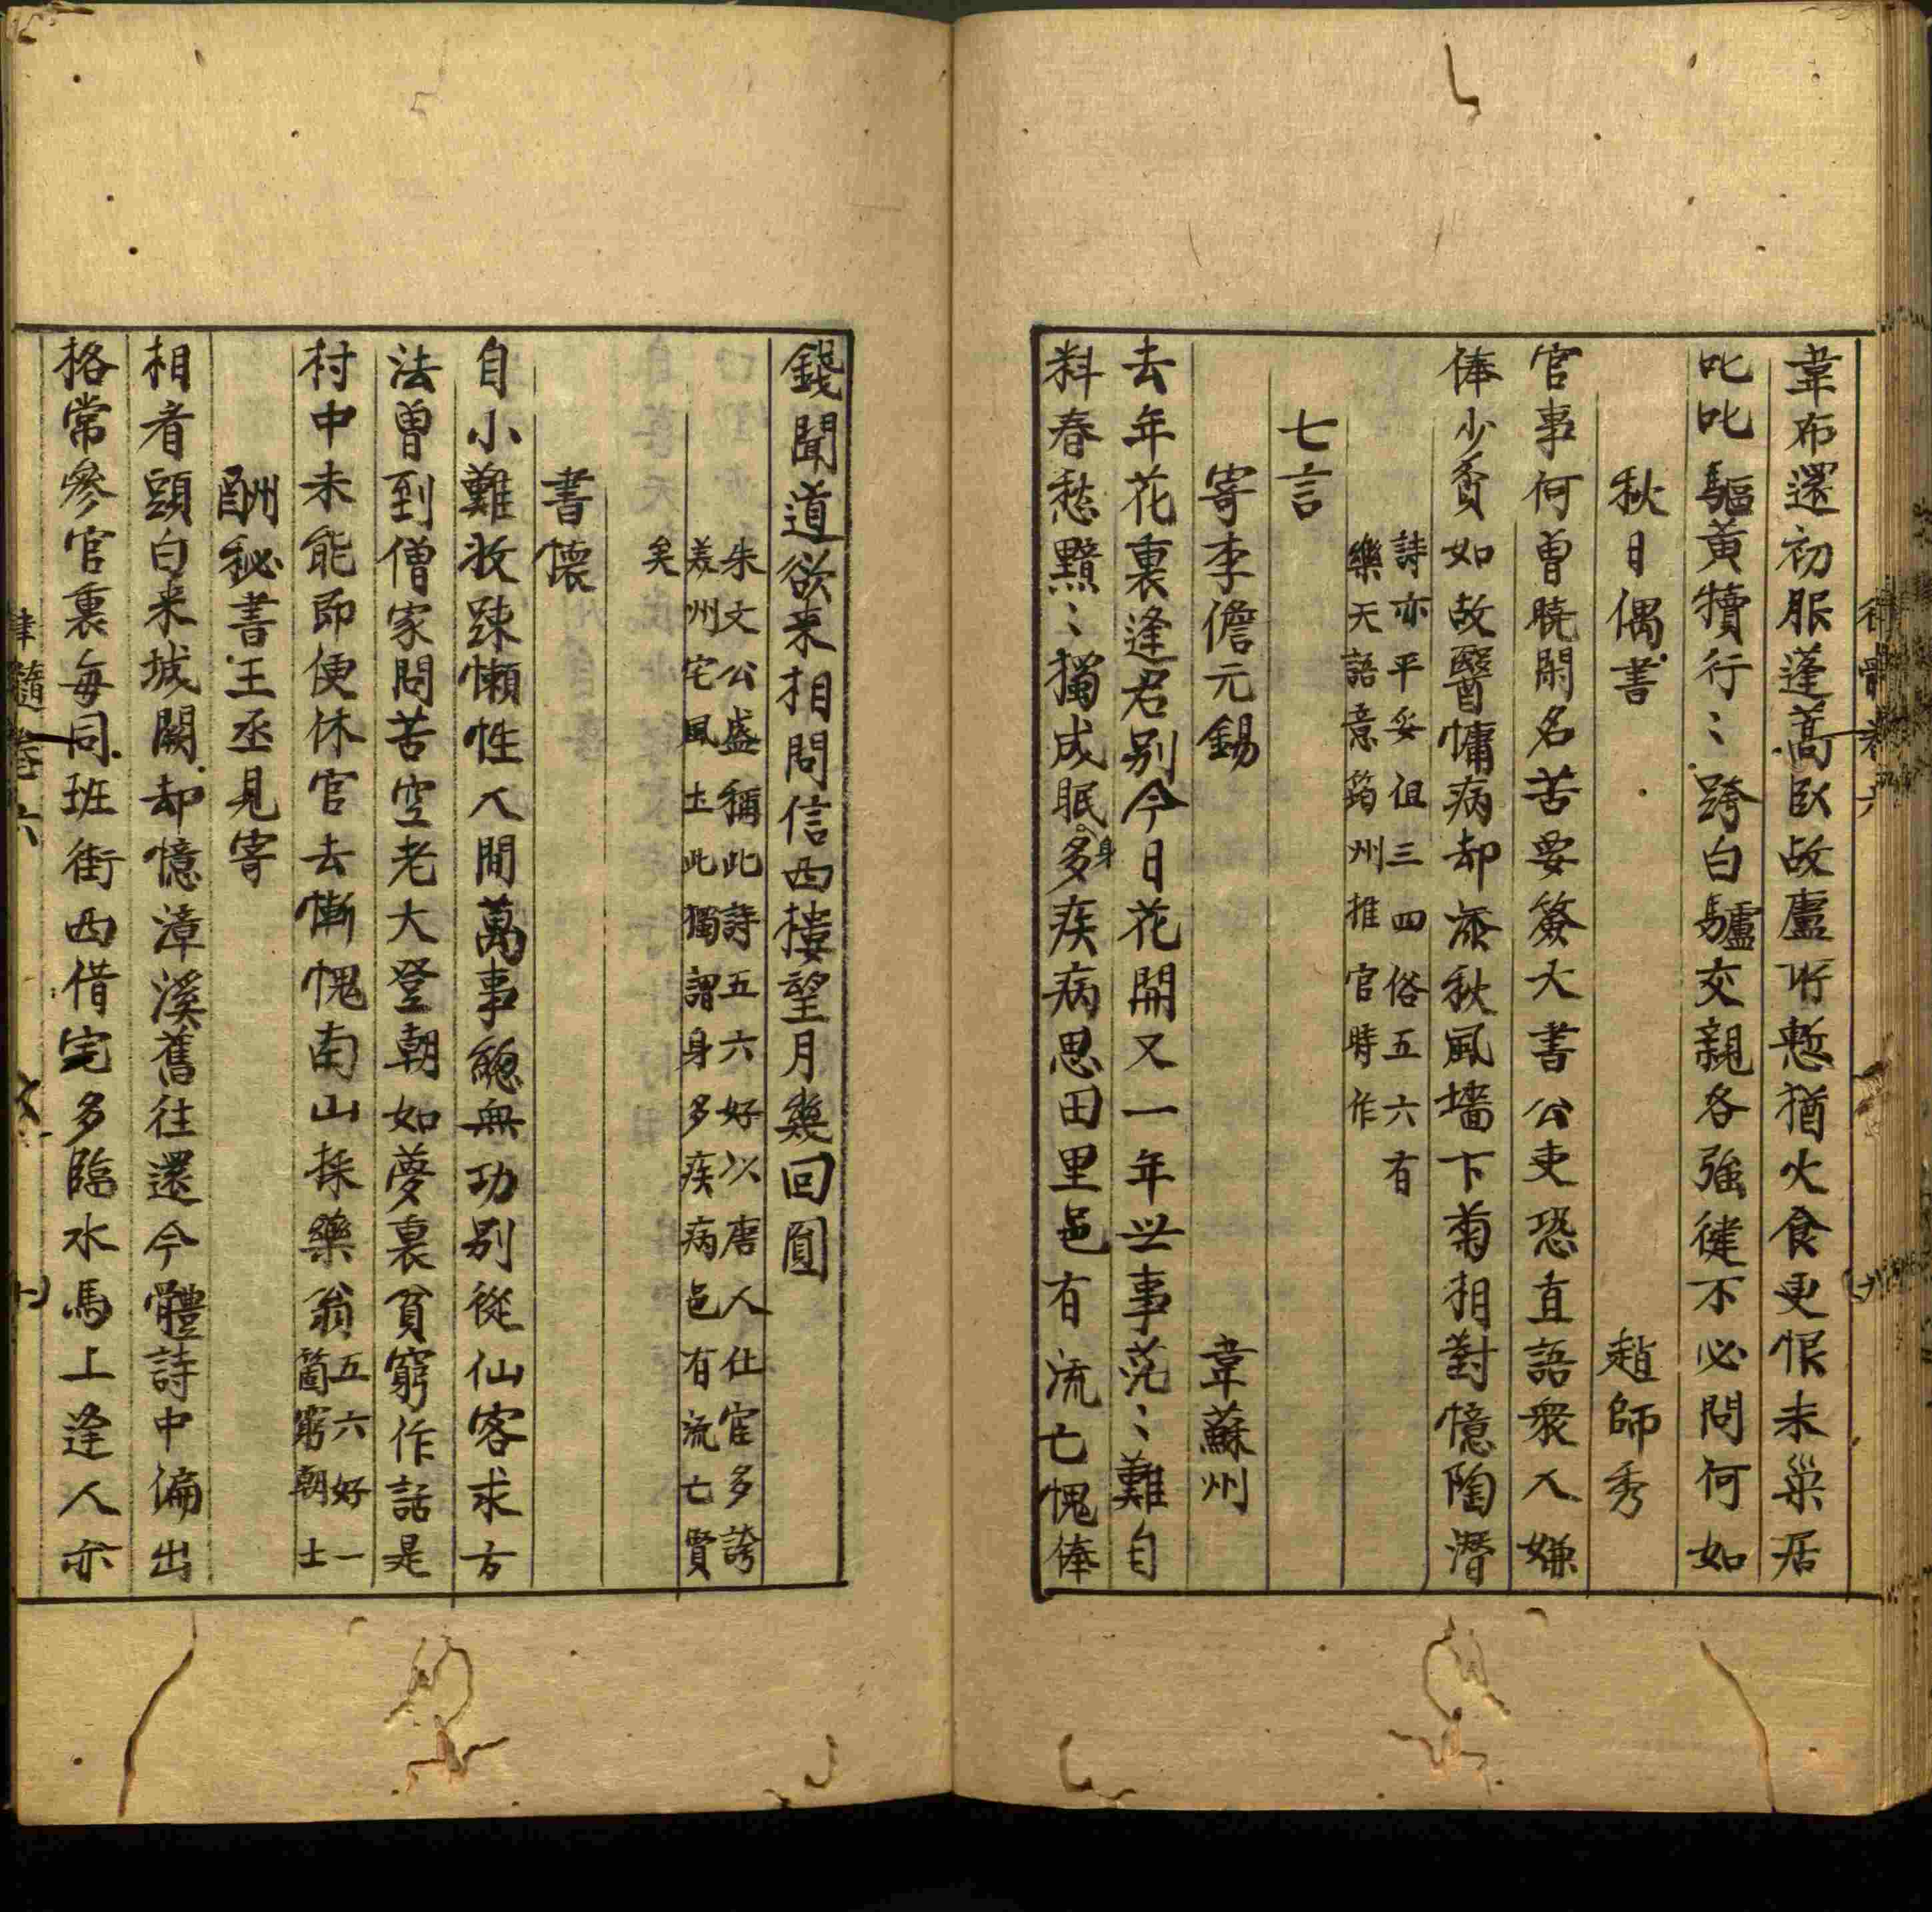 韋布還初服蓬蒿臥故廬所慙猶火食更恨未巢居
叱叱驅黃犢行〻跨白驢交親各強健不必問何如
秋日偶書 趙師秀
官事何曾曉閑名苦要簽大書公吏恐直語衆人嫌
俸少貧如故醫慵病却添秋風墻下菊相對憶陶潛
詩亦平妥但三四俗五六有
樂天語意筠州推官時作
七言
寄李儋元錫 韋蘇州
去年花裏逢君别今日花開又一年世事茫〻難自
料春愁黯〻獨成眠身多疾病思田里邑有流亡愧俸
錢聞道欲来相問信西樓望月幾回圓
朱文公盛稱此詩五六好以唐人仕宦多誇
羙州宅風土此獨謂身多疾病邑有流亡賢
矣
書懷
自小難收踈懶性人間萬事緫無功别從仙客求方
法曾到僧家問苦空老大登朝如夢裏貧窮作話是
村中未能即便休官去慚愧南山採藥翁
五六好一
箇窮朝士
酬秘書王丞見寄
相者頭白来城闕却憶漳溪舊往還今體詩中偏出
格常參官裏每同班街西借宅多臨水馬上逢人亦
律髓卷六